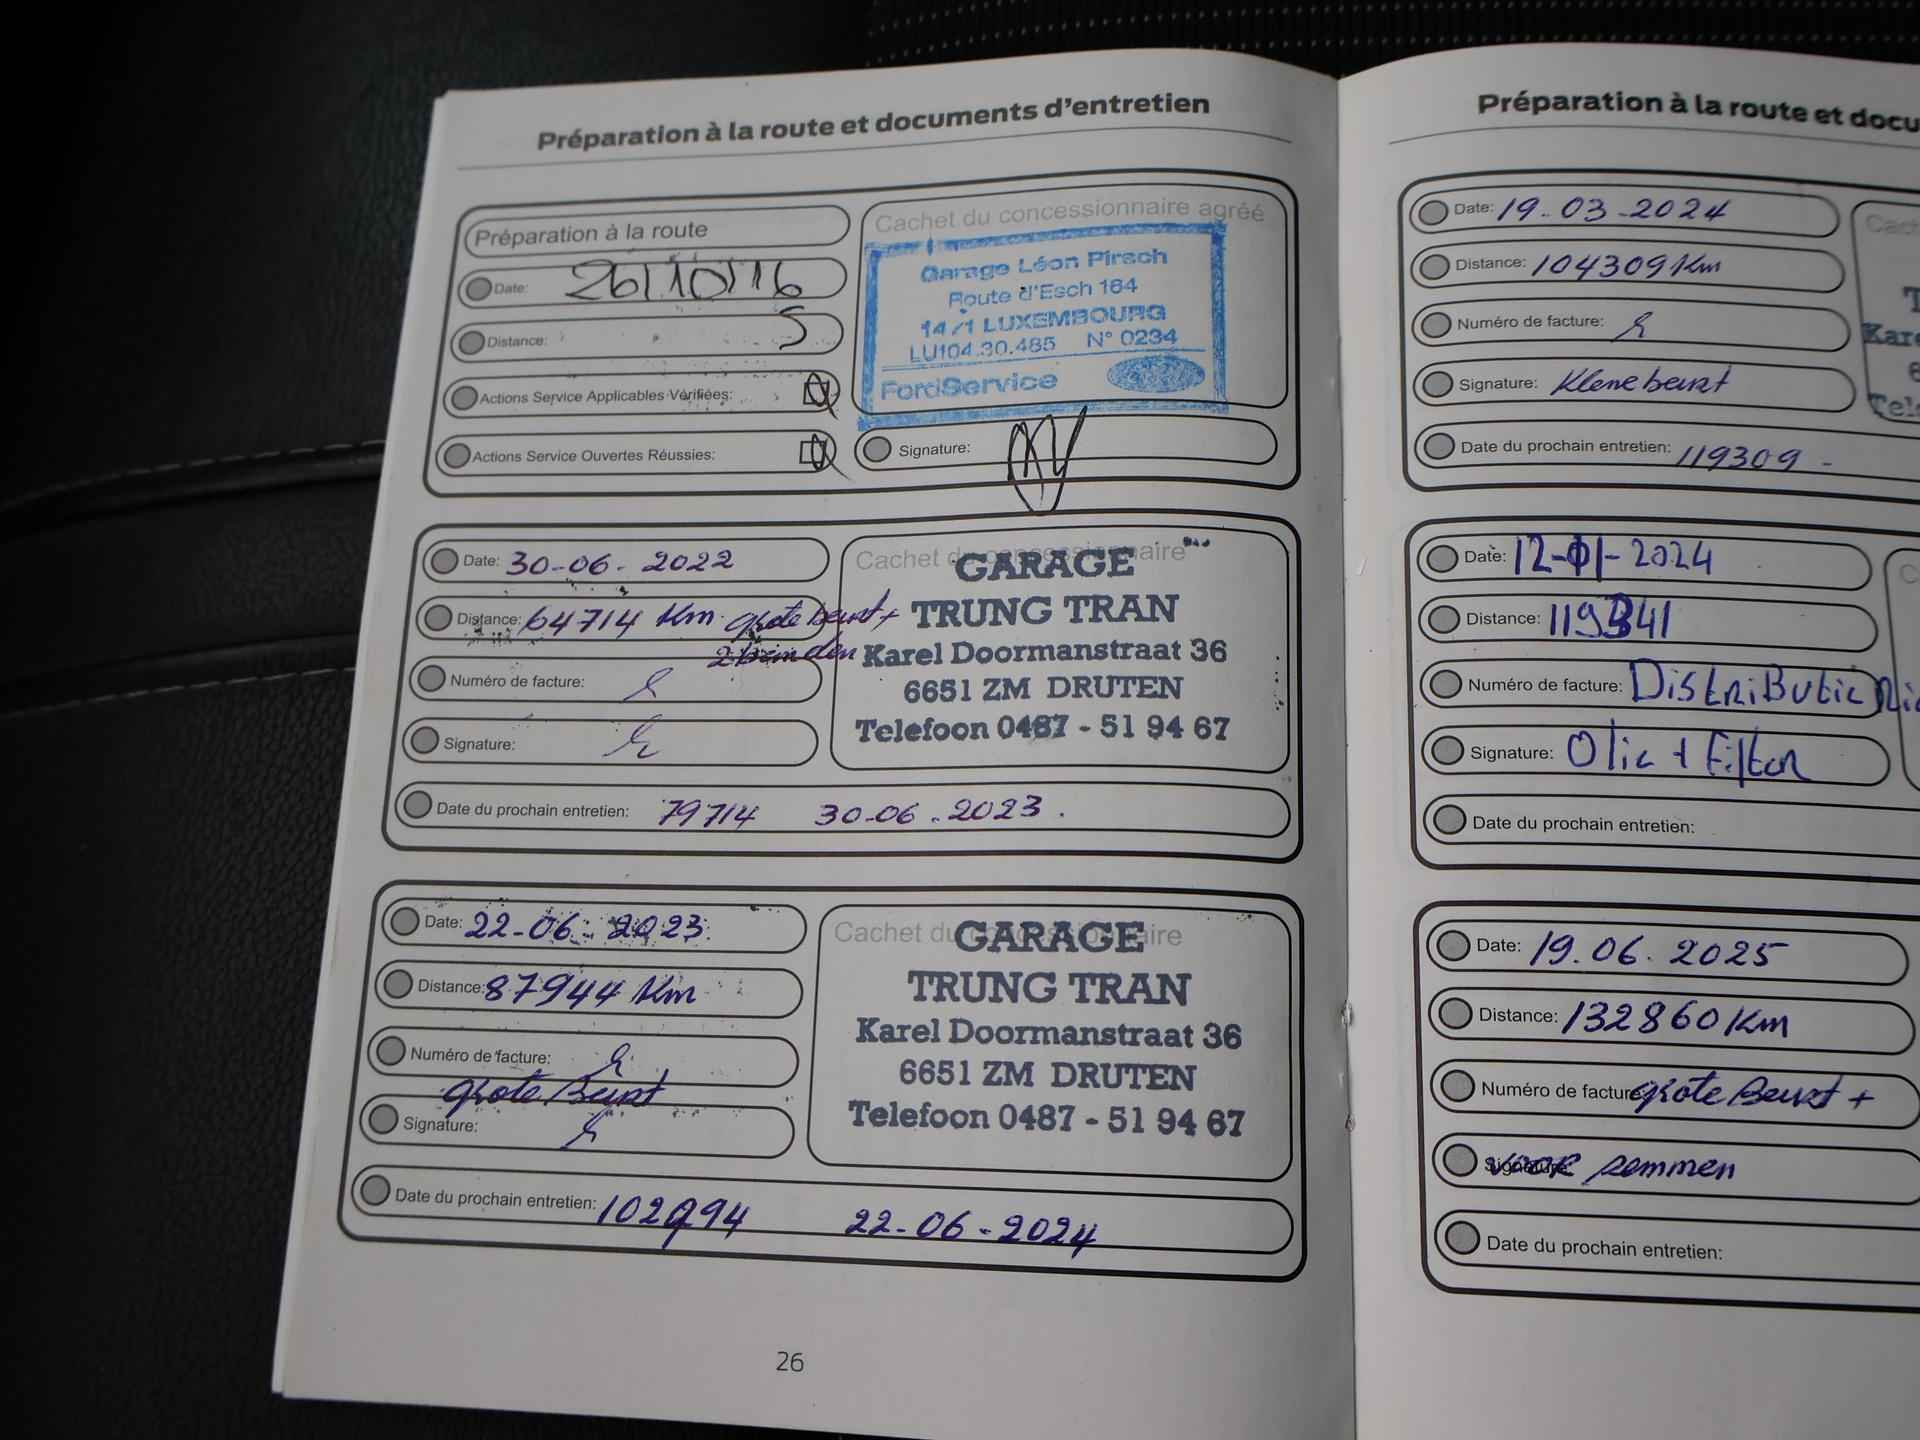 Préparation à la route et documents d'entretien
Préparation à la route
Date: 26/10/16
Distance: 5
Actions Service Applicables Vérifiées:
Actions Service Ouvertes Réussies:
Cachet du concessionnaire agréé
Garage Léon Pirsch
Route d'Esch 164
1471 LUXEMBOURG
LU104.30.485 N° 0234
FordService
Signature:
Date: 30-06-2022
Distance: 64714 Km grote beurt +
Numéro de facture:
Signature:
Date du prochain entretien: 79714 30-06-2023.
Cachet du concessionnaire
GARAGE
TRUNG TRAN
Karel Doormanstraat 36
6651 ZM DRUTEN
Telefoon 0487 - 51 94 67
Date: 22-06-2023
Distance: 87944 Km
Numéro de facture:
grote Beurt
Signature:
Date du prochain entretien: 102994 22-06-2024
Cachet du concessionnaire
GARAGE
TRUNG TRAN
Karel Doormanstraat 36
6651 ZM DRUTEN
Telefoon 0487 - 51 94 67
26
Préparation à la route et docu
Date: 19-03-2024
Distance: 104309 Km
Numéro de facture:
Signature: Klene beurt
Date du prochain entretien: 119309 -
Date: 12-01-2024
Distance: 119341
Numéro de facture: Distributie
Signature: Olie + Filter
Date du prochain entretien:
Date: 19.06.2025
Distance: 132860 Km
Numéro de facture grote Beurt +
Signature voor remmen
Date du prochain entretien: